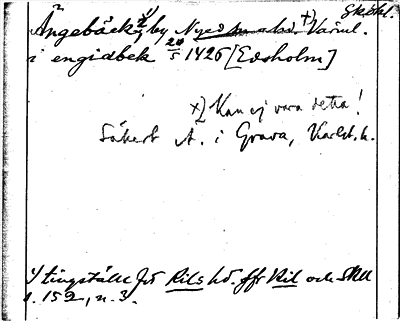 Skökl.
Ängebäck 1) by Nyed sn o hd. +) Värml.
i engiabek 20/5 1426 [Edsholm]
x) Kan ej vara detta!
Säkert A. i Grava, Karlst. h.
1) tingställe för Kils hd. jfr Kil och SRU
s. 152, n. 3.